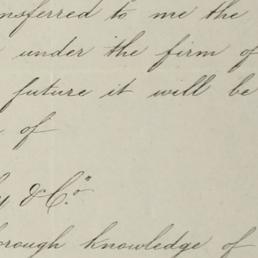 nsferred to me the
under the firm of
future it will be
of
y & C.º
orough knowledge of